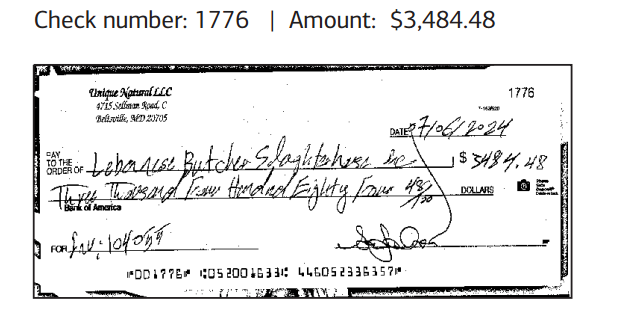 Check number: 1776 | Amount: $3,484.48
Unique Natural LLC
4715 Sellman Road, C
Beltsville, MD 20705
1776
DATE 07/06/2024
PAY TO THE ORDER OF Lebanese Butcher Slaghtehouse Inc $ 3484.48
Three Thousand Four Hundred Eighty Four 48/100 DOLLARS
Bank of America
FOR Inv:
⑈001776⑈ ⑆052001633⑆ 446052336357⑈